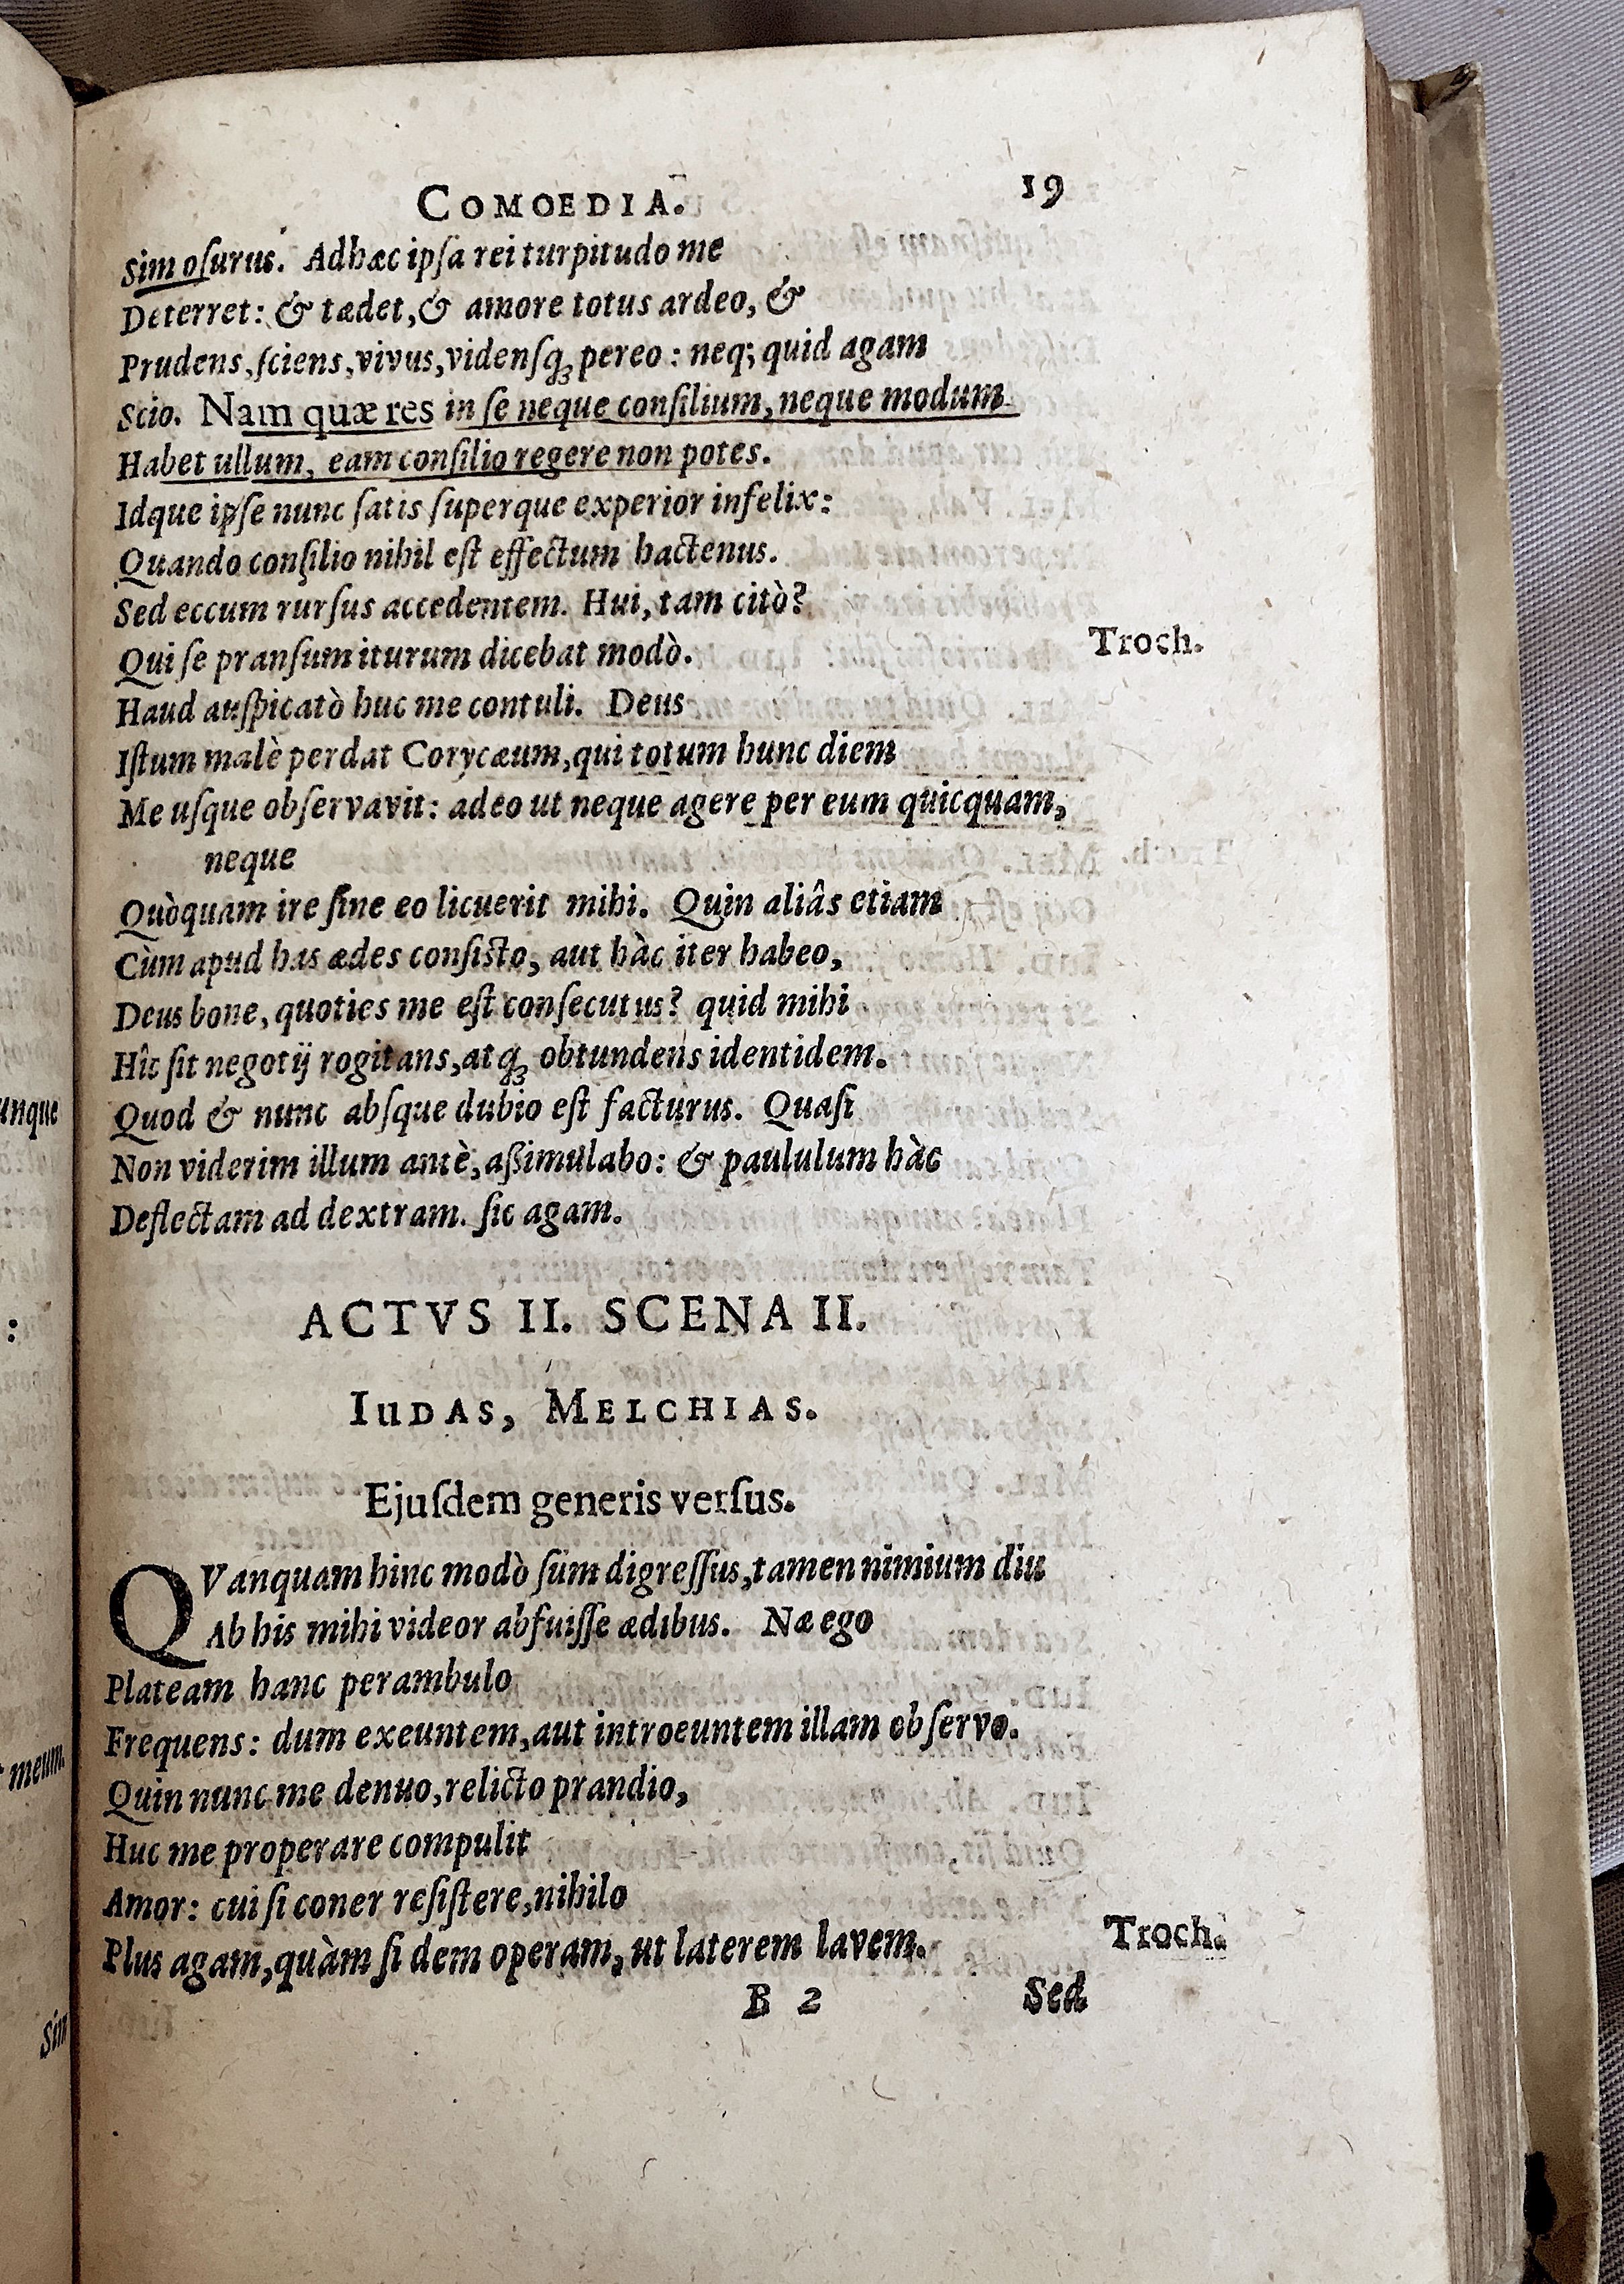 COMOEDIA. 19
Sim osurus. Adhæc ipsa rei turpitudo me
Deterret: & tædet, & amore totus ardeo, &
Prudens, sciens, vivus, vidensq; pereo: neq; quid agam
Scio. Nam quæ res in se neque consilium, neque modum
Habet ullum, eam consilio regere non potes.
Idque ipse nunc satis superque experior infelix:
Quando consilio nihil est effectum hactenus.
Sed eccum rursus accedentem. Hui, tam citò?
Qui se pransum iturum dicebat modò. Troch.
Haud auspicatò huc me contuli. Deus
Istum malè perdat Corycæum, qui totum hunc diem
Me usque observavit: adeo ut neque agere per eum quicquam,
neque
Quòquam ire sine eo licuerit mihi. Quin aliâs etiam
Cùm apud has ædes consisto, aut hàc iter habeo,
Deus bone, quoties me est consecutus? quid mihi
Hîc sit negotij rogitans, atq; obtundens identidem.
Quod & nunc absque dubio est facturus. Quasi
Non viderim illum antè, aßimulabo: & paululum hàc
Deflectam ad dextram. sic agam.
ACTVS II. SCENA II.
IUDAS, MELCHIAS.
Ejusdem generis versus.
QVanquam hinc modò sum digressus, tamen nimium diu
Ab his mihi videor abfuisse ædibus. Næ ego
Plateam hanc perambulo
Frequens: dum exeuntem, aut introeuntem illam observo.
Quin nunc me denuo, relicto prandio,
Huc me properare compulit
Amor: cui si coner resistere, nihilo
Plus agam, quàm si dem operam, ut laterem lavem. Troch.
B 2 Sed
unque
:
meum.
Sim